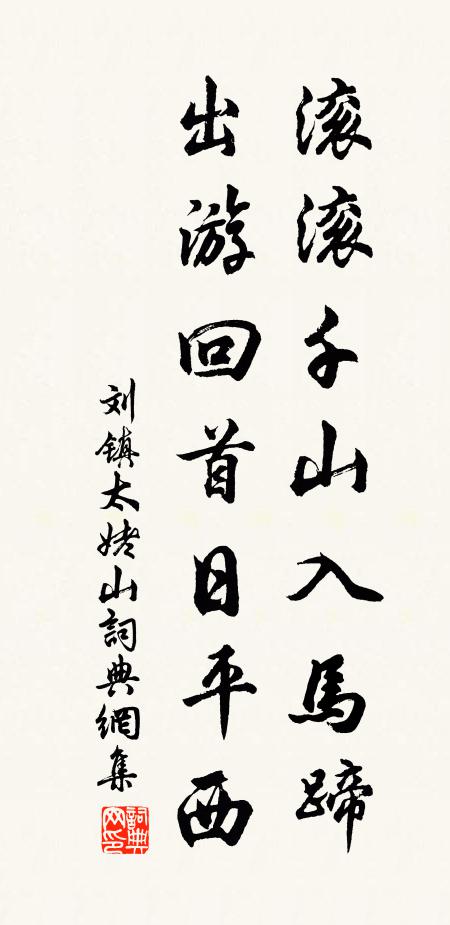 滚滚千山入馬蹄
出游回首日平西
刘镇太姥山詞典網集
詞典網印